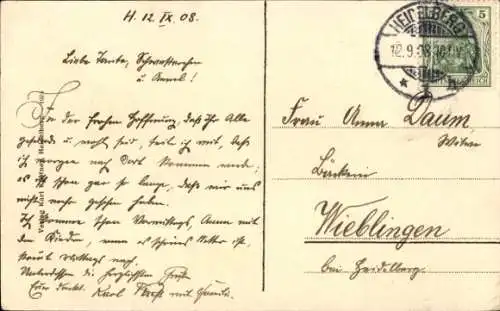 H. 12 IX 08.
Liebe Tante, Schwesterchen
u. Annel!
In der frohen Hoffnung, daß Ihr Alle
gesund u. wohl seid, teile ich mit, daß
ich morgen nach dort kommen werde,
es ist schon gar so lange, daß wir uns
nicht mehr gesehen haben.
Ich komme schon Vormittags, Anna mit
den Kindern, wenn es schönes Wetter ist,
kommt Mittags nach.
Unterdessen die herzlichsten Grüße
Euer dankb. Karl mit Familie.
Verlag Karl
HEIDELBERG
12.9.08.
* 1 h
5
Frau Anna Daum
Witwe
Bäckerei
Wieblingen
bei Heidelberg.